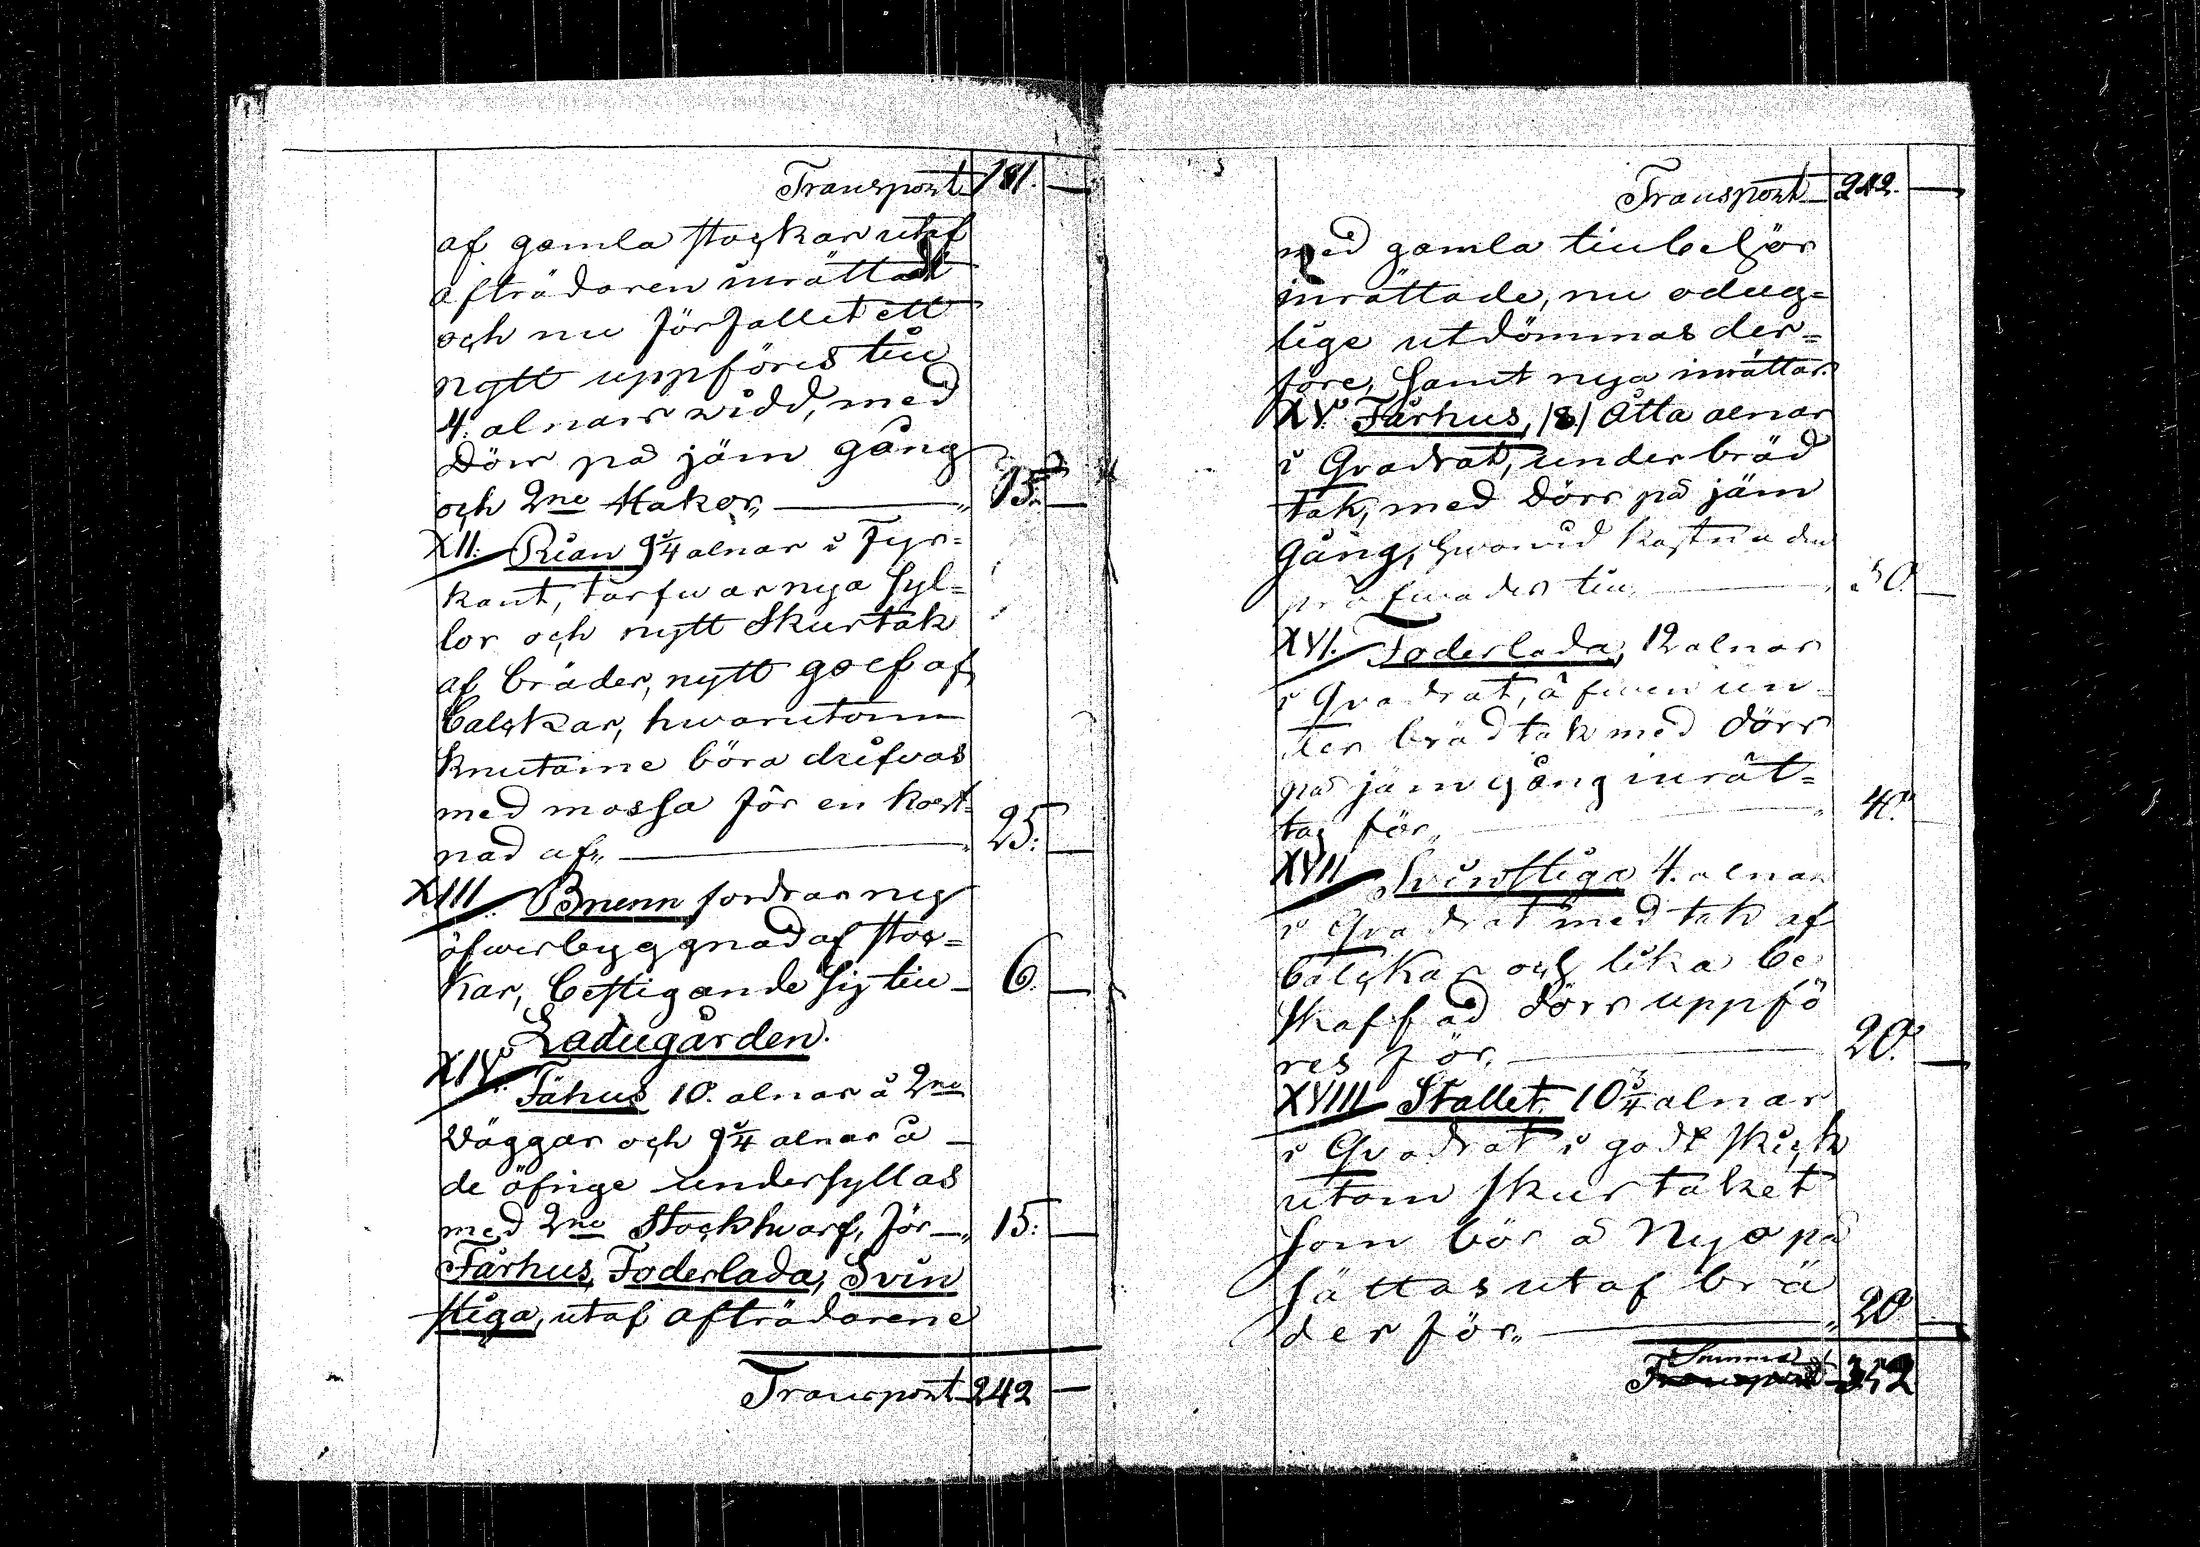 Transport 181. —
af gamla stockar utaf
afträdaren inrättadt
och nu förfallet ett
nytt uppföres till
4. alnars vidd, med
dörr på järn gång
och 2ne Hakor, — 15. —
XII. Rian 9¾ alnar i Fyr=
kant, tarfwar nya syl=
lor och nytt Skurtak
af bräder, nytt golf af
balckar, hwarutom
knutarne böra drifvas
med mossa för en kost=
nad af„ — 25: —
XIII. Brunn fordrar ny
öfwerbyggnad af stoc=
kar, bestigande sig till — 6. —
Ladugården.
XIV. Fähus 10. alnar å 2ne
väggar och 9¾ alnar å —
de öfrige undersyllas
med 2ne Stockhvarf, för — 15: —
Fårhus, Foderlada, Svin
stiga, utaf afträdarene
Transport 242 —
Transport 242. —
med gamla tillbehör
inrättade, nu odug=
lige utdömmas der=
före, samt nya inrättas.
XV. Fårhus, /8/ Åtta alnar
i Qvadrat, under bräd
tak, med dörr på järn
gång, hwarvid kostnaden
pröfwades till, — 30. —
XVI. Foderlada, 12 alnar
i Qvadrat, äfwen un=
der brädtak med dörr
på järn gång inrät=
tas för„ — 40.
XVII Svinstiga 4. alnar
i Qvadrat med tak af
balckar och lika be
skaffad dörr uppfö
res för, — 20. —
XVIII Stallet 10¾ alnar
i Qvadrat i godt skick
utom skurtaket
som bör å Nyo på
sättas utaf brä
der för„ — 20 —
Summa 352